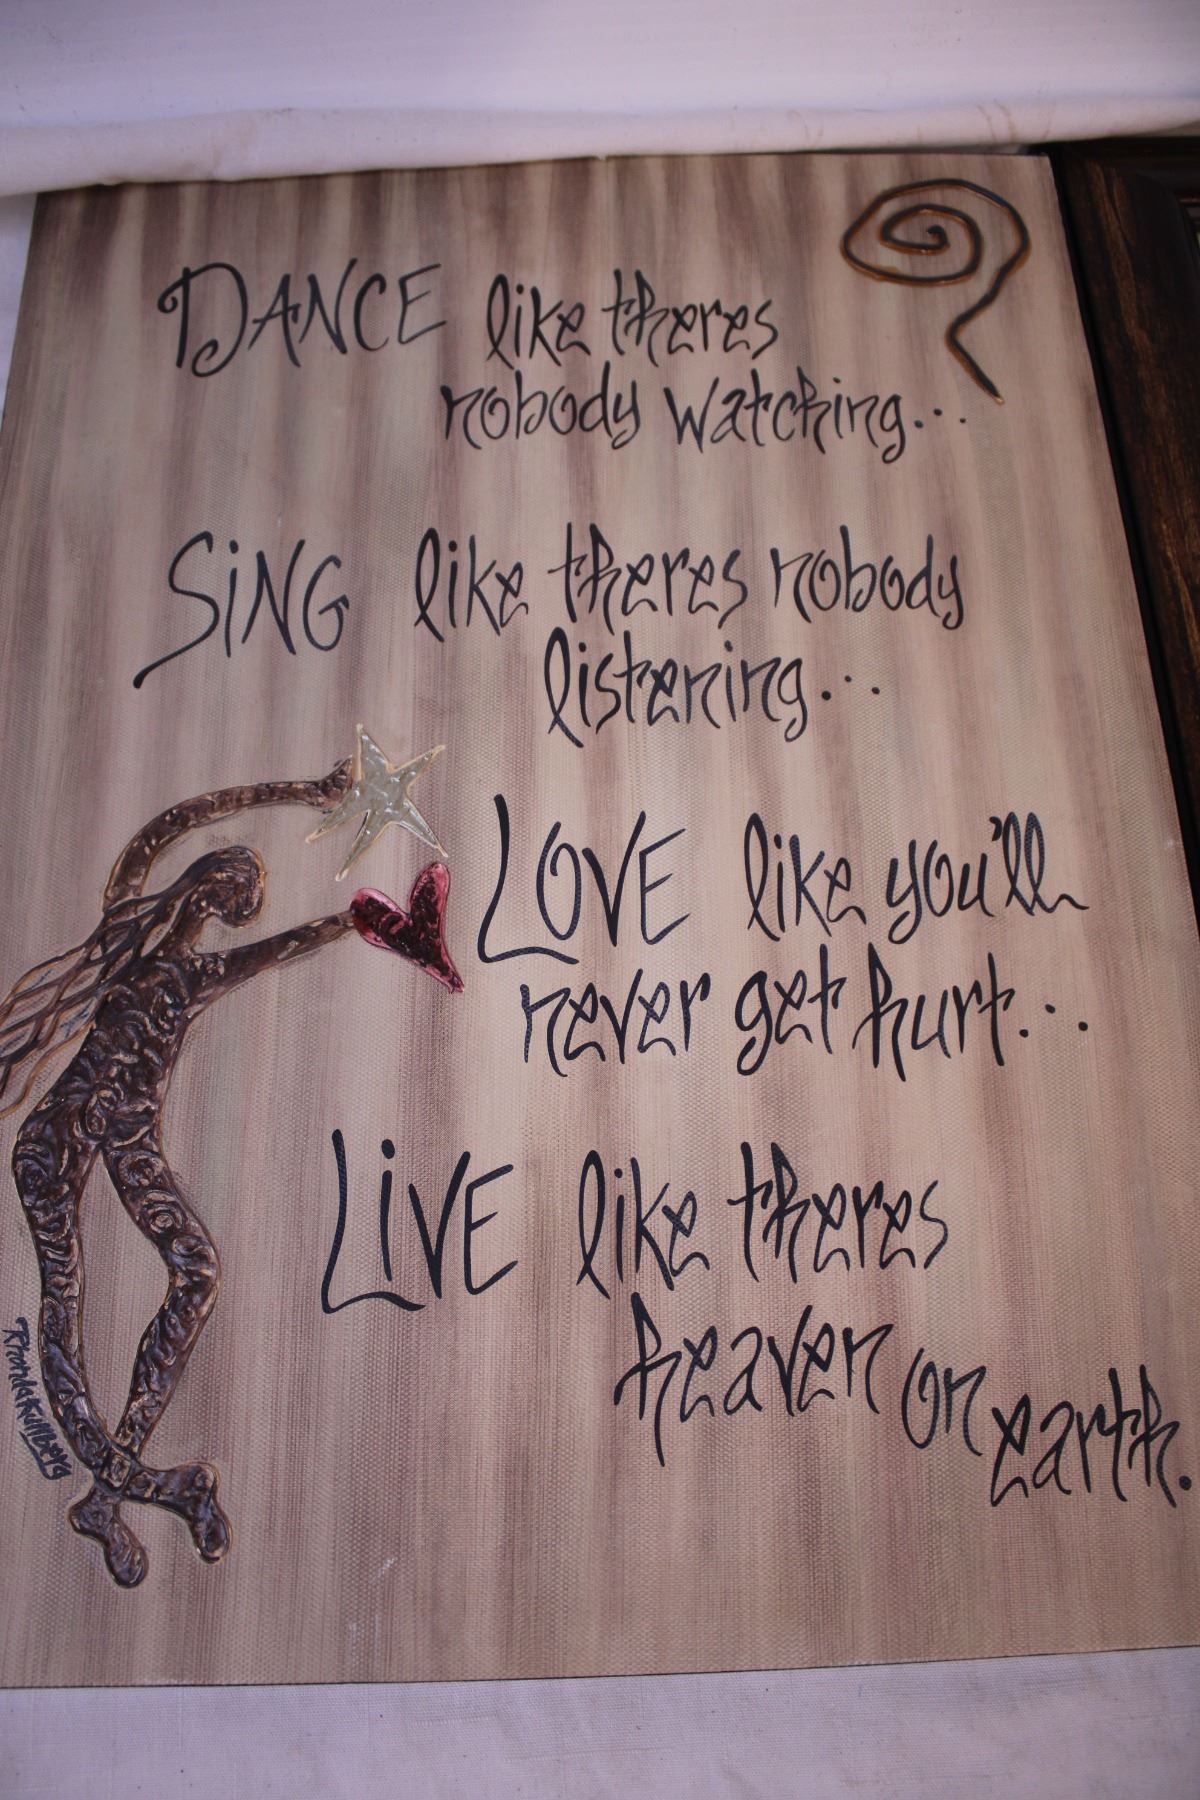 DANCE like theres
nobody watching...
SiNG like theres nobody
listening...
LOVE like you'll
never get hurt...
LiVE like theres
heaven on earth.
Rhonda Kullberg